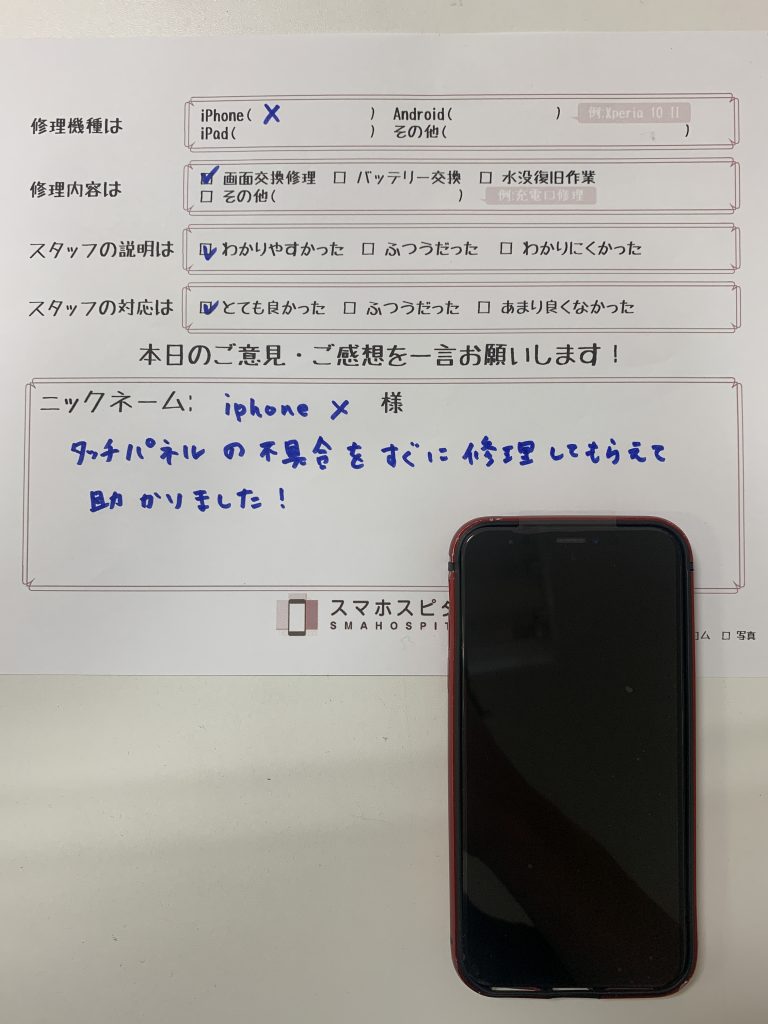 修理機種は
iPhone( X ) Android( ) 例:Xperia 10 II
iPad( ) その他( )
修理内容は
画面交換修理 □ バッテリー交換 □ 水没復旧作業
□ その他( ) 例:充電口修理
スタッフの説明は わかりやすかった □ ふつうだった □ わかりにくかった
スタッフの対応は とても良かった □ ふつうだった □ あまり良くなかった
本日のご意見・ご感想を一言お願いします!
ニックネーム: iphone X 様
タッチパネルの不具合をすぐに修理してもらえて
助かりました!
スマホスピタ
SMAHOSPIT
ム □ 写真